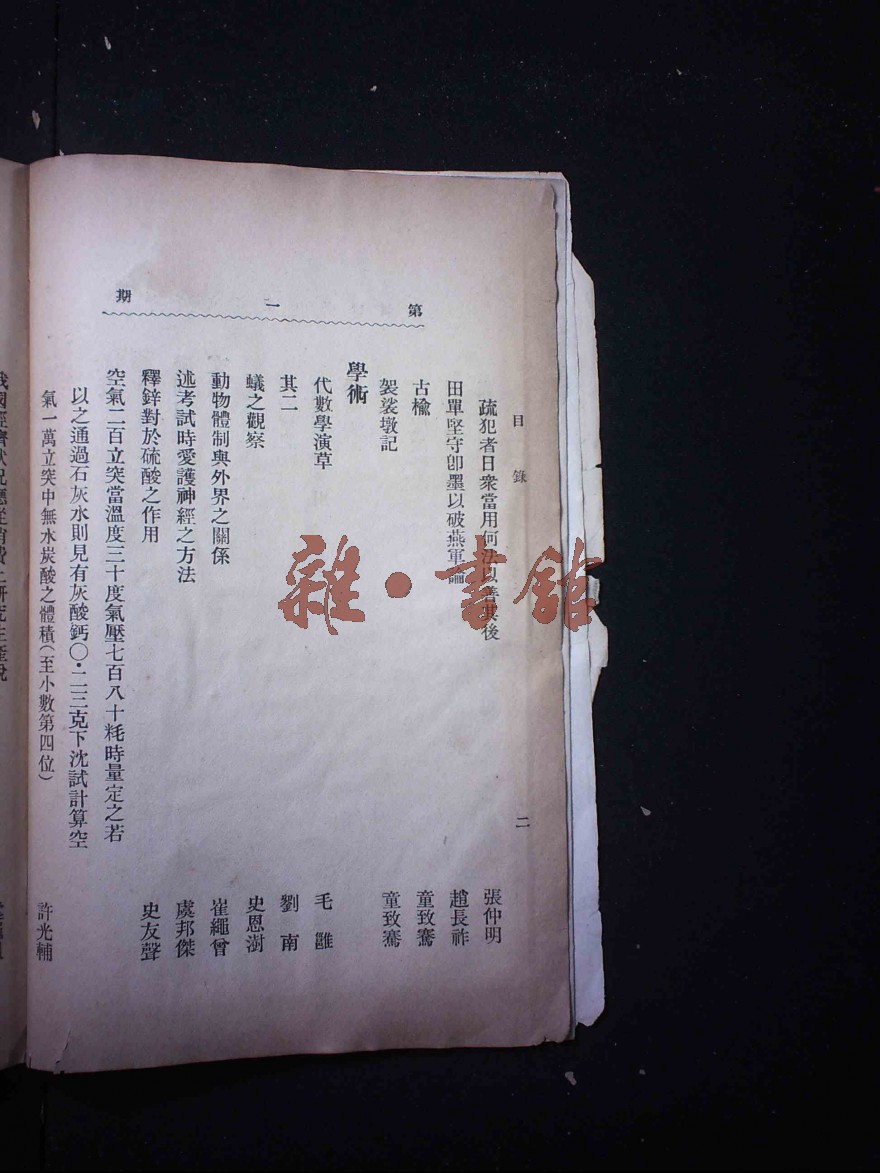 第一期
目錄
二
疏犯者日衆當用何法以善其後 張仲明
田單堅守卽墨以破燕軍論 趙長祚
古楡 童致騫
袈裟墩記 童致騫
學術
代數學演草 毛雝
其二 劉南
蟻之觀察 史恩澍
動物體制與外界之關係 崔繩曾
述考試時愛護神經之方法 虞邦傑
釋鋅對於硫酸之作用 史友聲
空氣二百立突當溫度三十度氣壓七百八十粍時量定之若
以之通過石灰水則見有灰酸鈣〇・二三克下沈試計算空
氣一萬立突中無水炭酸之體積(至小數第四位) 許光輔
我國經濟狀況應從消費上研究生產說
雜・書館